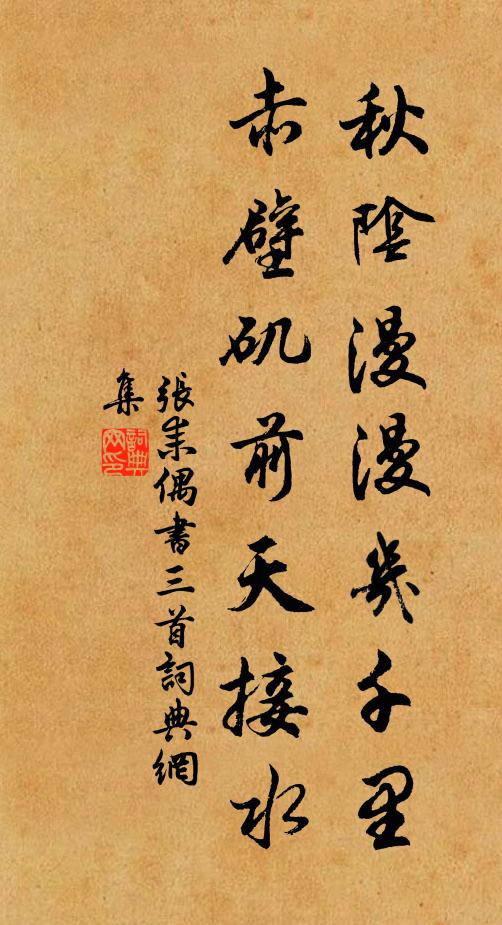 秋陰漫漫幾千里
赤壁矶前天接水
張耒偶書三首詞典網
集
詞典
网印